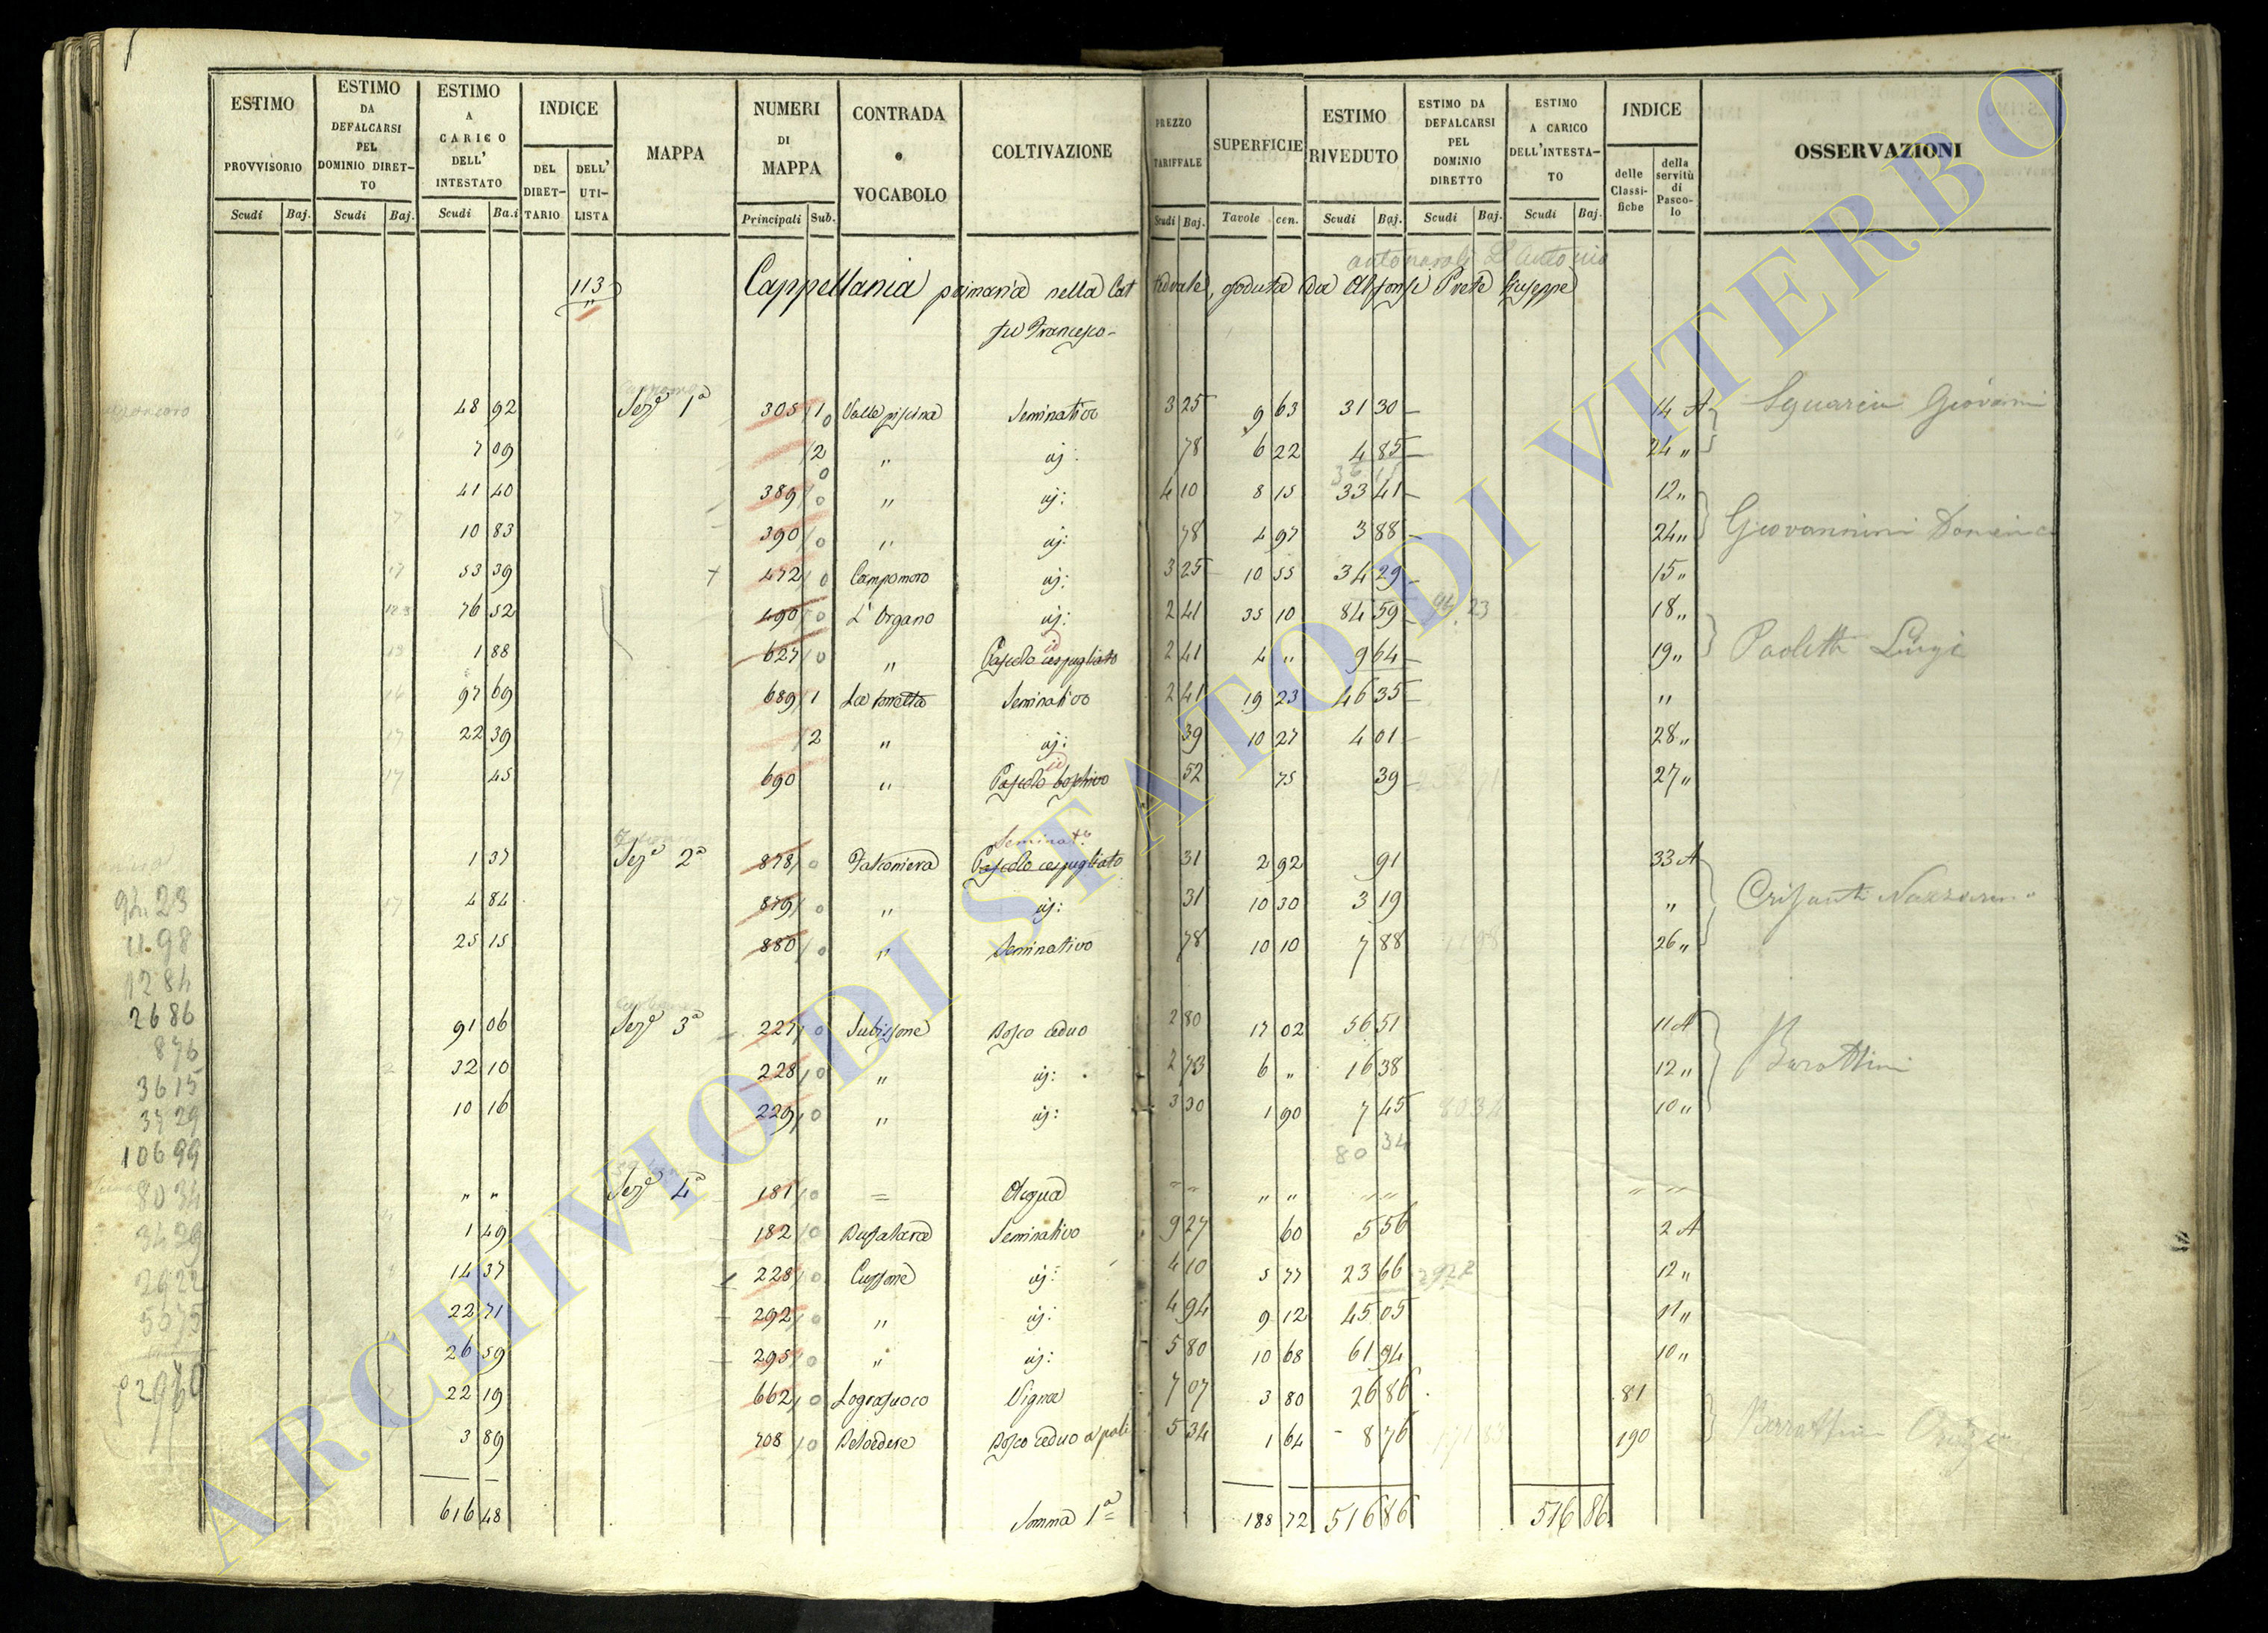 ESTIMO PROVVISORIO Scudi Baj.
ESTIMO DA DEFALCARSI PEL DOMINIO DIRET-TO Scudi Baj.
ESTIMO A CARICO DELL' INTESTATO Scudi Ba.i
INDICE DEL DIRET-TARIO DELL' UTI-LISTA
MAPPA
NUMERI DI MAPPA Principali Sub.
CONTRADA o VOCABOLO
COLTIVAZIONE
PREZZO TARIFFALE Scudi Baj.
SUPERFICIE Tavole cen.
ESTIMO RIVEDUTO Scudi Baj.
ESTIMO DA DEFALCARSI PEL DOMINIO DIRETTO Scudi Baj.
ESTIMO A CARICO DELL'INTESTA-TO Scudi Baj.
INDICE delle Classi-fiche della servitù di Pasco-lo
OSSERVAZIONI
113 Cappellania primaria nella Cattedrale, goduta da Alfonsi Prete Giuseppe
fu Francesco
48 92 Sez.e 1a 305 1 0 Valle piscina Seminativo 3 25 9 63 31 30 14 A Squarcia Giovanni
7 09 2 0 " id: 78 6 22 4 85 24 "
36 15
41 40 389 0 " id: 4 10 8 15 33 41 12 "
10 83 390 0 " id: 78 4 97 3 88 24 " Giovannini Domenico
53 39 + 472 0 Campomoro id: 3 25 10 55 34 29 15 "
76 52 490 0 L'Organo id: 2 41 35 10 84 59 94 23 18 "
1 88 627 0 " Pascolo cespugliato id 2 41 4 " 9 64 19 " Paoletti Luigi
97 69 689 1 La torretta Seminativo 2 41 19 23 46 35 "
22 39 2 " id: 39 10 27 4 01 28 "
45 690 " Pascolo boschivo id 52 75 39 27 "
Seminat.o
1 37 Sez.e 2a 878 0 Falconiera Pascolo cespugliato 31 2 92 91 33 A
4 84 879 0 " id: 31 10 30 3 19 " Crisanti Nazzareno
25 15 880 0 " Seminativo 78 10 10 7 88 11 98 26 "
91 06 Sez.e 3a 227 0 Subissone Bosco ceduo 2 80 17 02 56 51 11 A
32 10 228 0 " id: 2 73 6 " 16 38 12 " Barattini
10 16 229 0 " id: 3 30 1 90 7 45 80 34 10 "
80 34
" " Sez.e 4a 181 0 = Acqua " " " " " " " "
1 49 182 0 Bufalara Seminativo 9 27 60 5 56 2 A
14 37 228 0 Cussone id: 4 10 5 77 23 66 29 22 12 "
22 71 292 0 " id: 4 94 9 12 45 05 11 "
26 59 295 0 " id: 5 80 10 68 61 94 10 "
22 19 662 0 Lograsuoco Vigna 7 07 3 80 26 86 81
3 89 708 0 Belvedere Bosco ceduo a pali 5 34 1 64 8 76 190
616 48 Somma 1a 188 72 516 86 516 86
94.23
11.98
12 84
26 86
8 76
36 15
34 29
106 99
80 34
34 29
ARCHIVIO DI STATO DI VITERBO